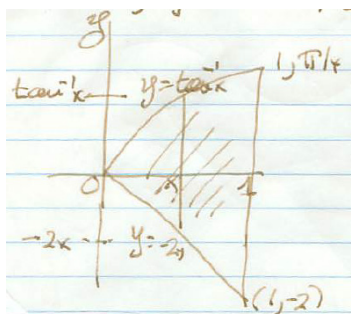 y
1, π/4
tan⁻¹x
y = tan⁻¹x
0
x
1
-2x
y = -2x
(1, -2)